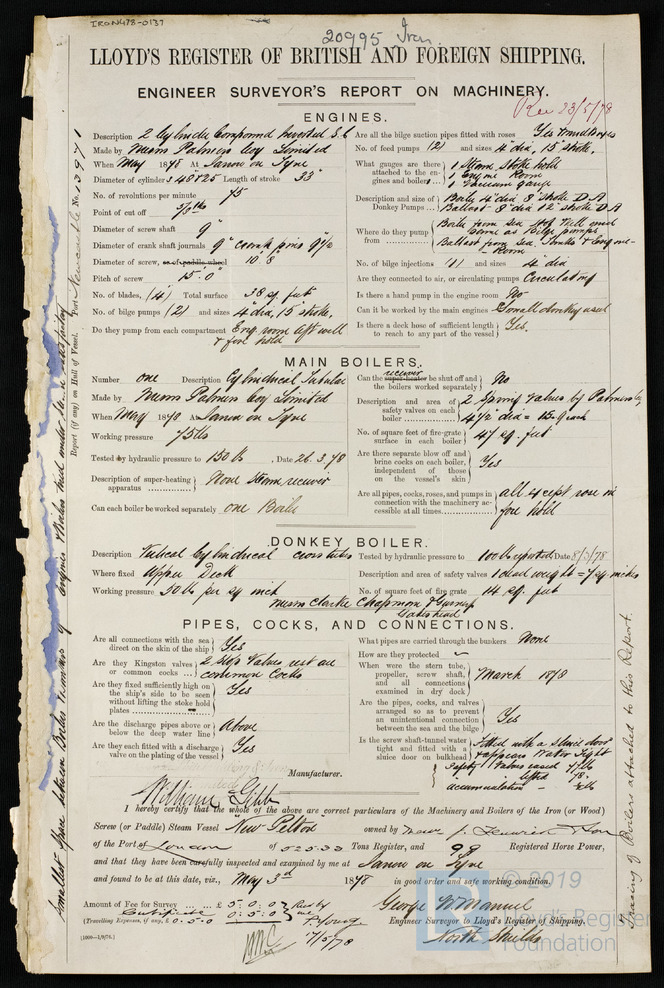 IRON478-0137
20995 Iron
LLOYD'S REGISTER OF BRITISH AND FOREIGN SHIPPING.
ENGINEER SURVEYOR'S REPORT ON MACHINERY.
Rec 23/5/78
Port Newcastle No. 13971
Report (if any) on Hull of Vessel.
ENGINES.
Description 2 Cylinder Compound Inverted S.C
Made by Messrs Palmers Coy Limited
When May 1878 At Jarrow on Tyne
Diameter of cylinders 48" & 25 Length of stroke 33"
No. of revolutions per minute 75
Point of cut off
Diameter of screw shaft 9"
Diameter of crank shaft journals 9" crank pins 9½
Diameter of screw, or of paddle wheel 10' 8"
Pitch of screw 15' 0"
No. of blades, (4) Total surface 38 sq. feet
No. of bilge pumps (2) and sizes 4" dia, 15" stroke.
Do they pump from each compartment Eng. room aft well
& fore hold
Are all the bilge suction pipes fitted with roses Yes
No. of feed pumps (2) and sizes 4" dia, 15" stroke.
What gauges are there attached to the engines and boilers
1 Steam Stoke hold
1 Engine Room
1 Vacuum gauge
Description and size of Donkey Pumps
Boily 4" dia 8" stroke D.A
Ballast 8" dia 12" stroke D.A
Where do they pump from
Boily from sea Hot Well and
same as bilge pumps
Ballast from sea, Tanks & Engine-
Room
No. of bilge injections (1) and sizes 4" dia
Are they connected to air, or circulating pumps Circulating
Is there a hand pump in the engine room No
Can it be worked by the main engines Small donkey used
Is there a deck hose of sufficient length to reach to any part of the vessel Yes.
MAIN BOILERS.
Number one Description Cylindrical Tubular
Made by Messrs Palmers Coy Limited
When May 1878 At Jarrow on Tyne
Working pressure 75 lbs
Tested by hydraulic pressure to 150 lbs, Date 26.3.78
Description of super-heating apparatus None Steam receiver
Can each boiler be worked separately one Boiler
Can the super-heater receiver be shut off and the boilers worked separately No
Description and area of safety valves on each boiler
2 Spring Valves by Palmers Coy
4½ dia = 15.9 each
No. of square feet of fire-grate surface in each boiler 47 sq. feet
Are there separate blow off and brine cocks on each boiler, independent of those on the vessel's skin Yes
Are all pipes, cocks, roses, and pumps in connection with the machinery accessible at all times all except rose in
fore hold
DONKEY BOILER.
Description Vertical Cylindrical cross tubes
Where fixed Upper Deck
Working pressure 50 lbs per sq inch
Tested by hydraulic pressure to 100 lbs Date 8/3/78
Description and area of safety valves 1 dead weight = 7 sq inches
No. of square feet of fire grate 14 sq. feet
Messrs Clarke Chapman & Gurney
Gateshead
PIPES, COCKS, AND CONNECTIONS.
Are all connections with the sea direct on the skin of the ship Yes
Are they Kingston valves or common cocks 2 stop Valves rest are
common cocks
Are they fixed sufficiently high on the ship's side to be seen without lifting the stoke hold plates Yes
Are the discharge pipes above or below the deep water line Above
Are they each fitted with a discharge valve on the plating of the vessel Yes
What pipes are carried through the bunkers None
How are they protected
When were the stern tube, propeller, screw shaft, and all connections examined in dry dock March 1878
Are the pipes, cocks, and valves arranged so as to prevent an unintentional connection between the sea and the bilge Yes
Is the screw shaft-tunnel water tight and fitted with a sluice door on bulkhead fitted with a sluice door
& appears Water Tight
Safety Valves eased 77 lbs
lifted 78
accumulation
Manufacturer.
William Gibb
I hereby certify that the whole of the above are correct particulars of the Machinery and Boilers of the Iron (or Wood)
Screw (or Paddle) Steam Vessel New Pelton owned by Messrs J. Fenwick & Son
of the Port of London of 525.33 Tons Register, and 98 Registered Horse Power,
and that they have been carefully inspected and examined by me at Jarrow on Tyne
and found to be at this date, viz., May 3rd 1878 in good order and safe working condition.
Amount of Fee for Survey ... £ 5:0:0 Recd by me
Certificate 0:5:0
(Travelling Expenses, if any, £ 0.5.0)
T. Young
17/5/78
George W. Manuel
Engineer Surveyor to Lloyd's Register of Shipping.
North Shields
Tracing of Boilers attached to this Report.
© 2019
Lloyd's Register
Foundation